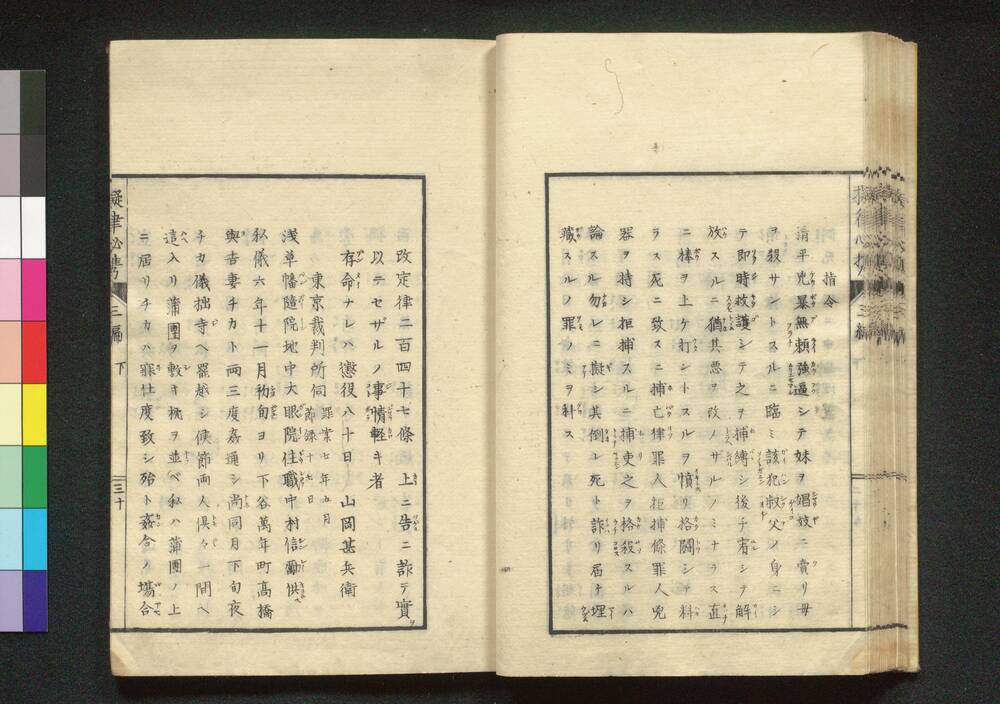 指令
清平兇暴無頼強逼シテ妹ヲ娼妓ニ賣リ母
ヲ殺サントスルニ臨ミ該犯叔父ノ身ニシ
テ即時救護シテ之ヲ捕縛シ後チ宥シテ解
放スルニ猶其悪ヲ改メザルノミナラス直
ニ棒ヲ上ケ打ントスルヲ憤リ格闘シテ料
ラス死ニ致スニ捕亡律罪人拒捕條罪人兇
器ヲ持シ拒捕スルニ捕吏之ヲ格殺スルハ
論スル勿レニ擬シ其倒レ死ト詐リ届ケ埋
藏スルノ罪ノミヲ科ス
擬律必携
三編
改定律二百四十七條上ニ告ニ詐テ實ヲ
以ニセザルノ事情軽キ者
存命ナレハ懲役八十日 山岡甚兵衛
東京裁判所伺 罪案七年五月
節録十七日
浅草幡隨院地中大眼院住職中村信勵供ヘ
私儀六年十一月初旬ヨリ下谷萬年町髙橋
與吉妻チカト両三度姦通シ尚同月下旬夜
チカ儀拙寺ヘ罷越シ候節両人倶々一間ヘ
這入リ蒲團ヲ敷キ枕ヲ並ベ私ハ蒲團ノ上
ニ居リチカハ寐仕度致シ殆ト姦合ノ場合
三編 下
三十